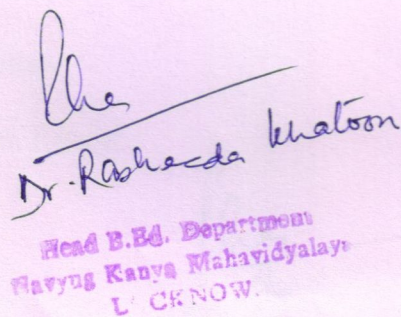 Dr. Rasheeda Khatoon
Head B.Ed. Department
Navyug Kanya Mahavidyalaya
LUCKNOW.